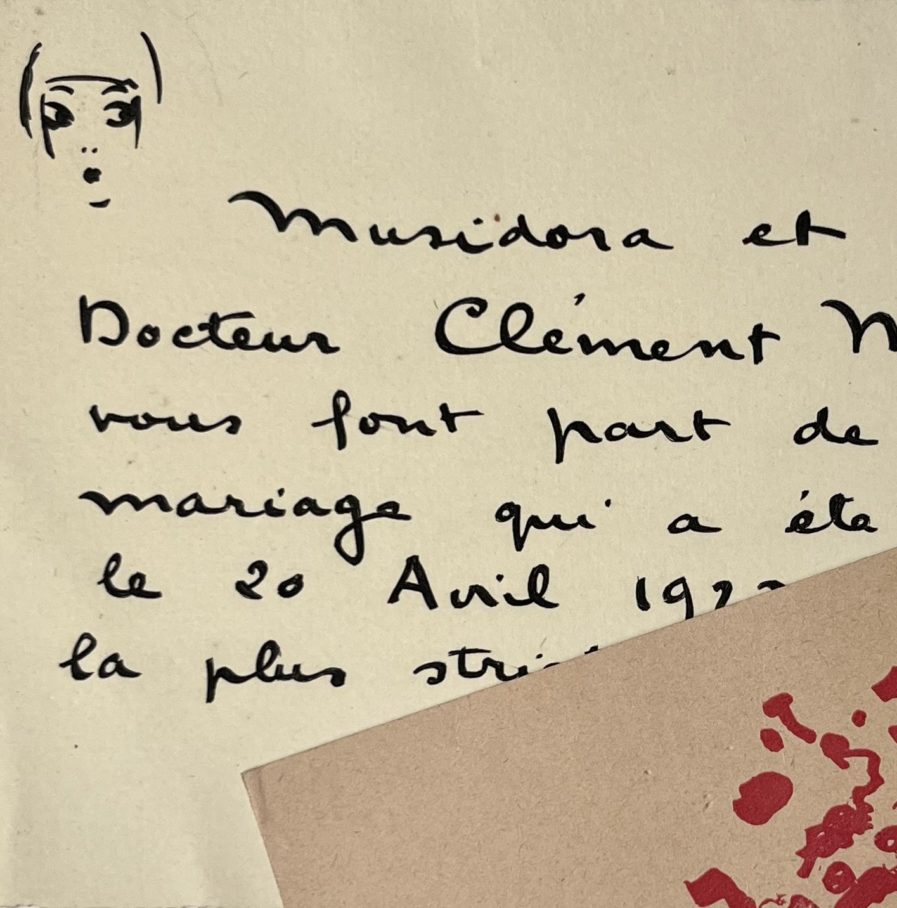 Musidora et
Docteur Clément
vous font part de
mariage qui a été
le 20 Avril
la plus